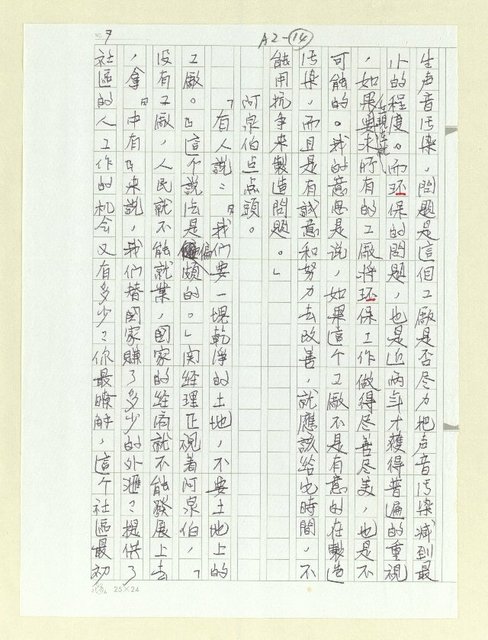 A2-14
9
生声音污染，問題是這個工廠是否尽力把声音污染减到最
小的程度。而环保的問題，也是近两年才獲得普遍的重視
，如果要求所有的工廠在現階段將环保工作做得尽善尽美，也是不
可能的。我的意思是說，如果這个工廠不是有意的在製造
污染，而且是有誠意和努力去改善，就應該给它時間，不
能用抗争來製造問題。」
阿泉伯点点頭。
「有人說：『我們要一塊乾净的土地，不要土地上的
工廠。』這个說法是偏頗的。」関經理正視着阿泉伯，「
没有工廠，人民就不能就業，國家的经濟就不能發展上去
，拿『中有』來說，我們替國家賺了多少的外滙？提供了
社區的人工作的机会又有多少？你最瞭解，這个社區最初
25×24